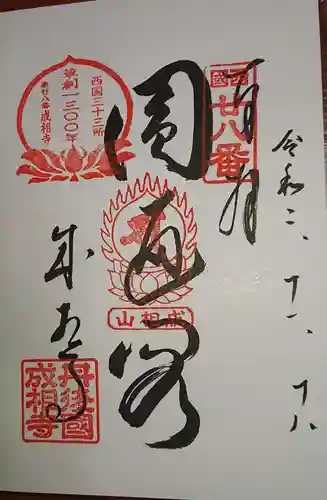 令和二、十一、十八
奉拝
西国
廿八番
圓通閣
成相山
西国三十三所
草創一三〇〇年
第廿八番成相寺
成相寺
丹後國
成相寺